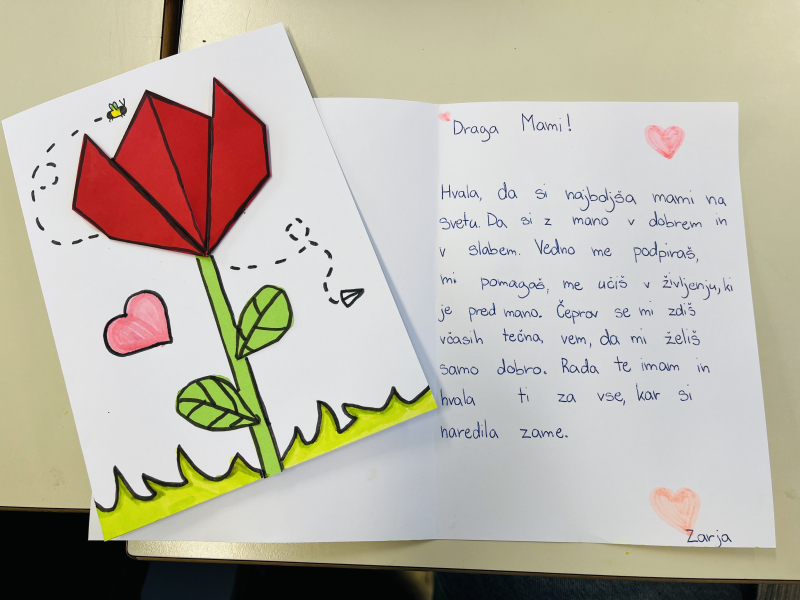 Draga Mami!
Hvala, da si najboljša mami na
svetu. Da si z mano v dobrem in
v slabem. Vedno me podpiraš,
mi pomagaš, me učiš v življenju, ki
je pred mano. Čeprov se mi zdiš
včasih tečna, vem, da mi želiš
samo dobro. Rada te imam in
hvala ti za vse, kar si
naredila zame.
Zarja